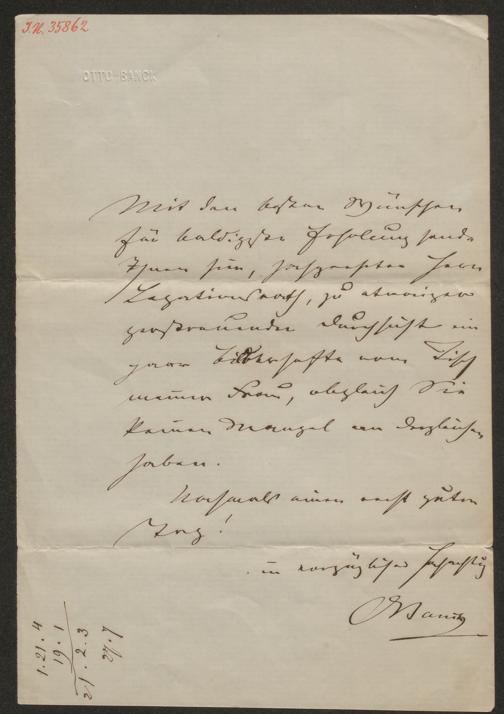 I.N. 35862
OTTO-BANCK
Mit den besten Wünschen
für baldigste Erholung sende
Ihnen hier, hochgeehrter Herr
Legationsrath, zu etwaiger
zerstreuender Durchsicht ein
paar Bilderhefte vom Tisch
meiner Frau, obgleich Sie
keinen Mangel an dergleichen
haben.
Nochmals einen recht guten
Tag!
in vorzüglicher Hochachtung
OBanck
1.21.4
19.1
21.2.3
24.1